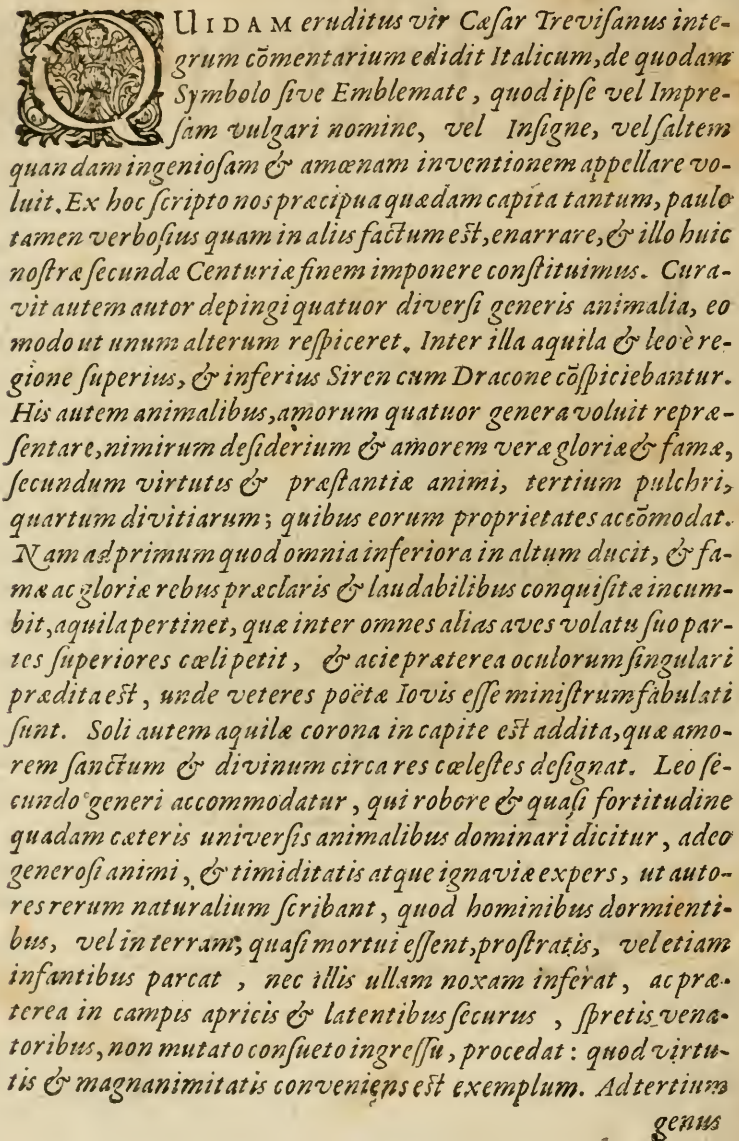 QUIDAM eruditus vir Cæſar Treviſanus inte-
grum cōmentarium edidit Italicum, de quodam
Symbolo ſive Emblemate, quod ipſe vel Impre-
ſam vulgari nomine, vel Inſigne, vel ſaltem
quandam ingenioſam & amœnam inventionem appellare vo-
luit. Ex hoc ſcripto nos præcipua quædam capita tantum, paulo
tamen verboſius quam in aliis factum eſt, enarrare, & illo huic
noſtræ ſecundæ Centuriæ finem imponere conſtituimus. Cura-
vit autem autor depingi quatuor diverſi generis animalia, eo
modo ut unum alterum reſpiceret. Inter illa aquila & leo è re-
gione ſuperius, & inferius Siren cum Dracone cōſpiciebantur.
His autem animalibus, amorum quatuor genera voluit repræ-
ſentare, nimirum deſiderium & amorem veræ gloriæ & famæ,
ſecundum virtutis & præſtantiæ animi, tertium pulchri,
quartum divitiarum; quibus eorum proprietates accōmodat.
Nam ad primum quod omnia inferiora in altum ducit, & fa-
mæ ac gloriæ rebus præclaris & laudabilibus conquiſitæ incum-
bit, aquila pertinet, quæ inter omnes alias aves volatu ſuo par-
tes ſuperiores cœli petit, & acie præterea oculorum ſingulari
prædita eſt, unde veteres poëtæ Iovis eſſe miniſtrum fabulati
ſunt. Soli autem aquilæ corona in capite eſt addita, quæ amo-
rem ſanctum & divinum circa res cœleſtes deſignat. Leo ſe-
cundo generi accommodatur, qui robore & quaſi fortitudine
quadam cæteris univerſis animalibus dominari dicitur, adeo
generoſi animi, & timiditatis atque ignaviæ expers, ut auto-
res rerum naturalium ſcribant, quod hominibus dormienti-
bus, vel in terram; quaſi mortui eſſent, proſtratis, vel etiam
infantibus parcat, nec illis ullam noxam inferat, ac præ-
terea in campis apricis & latentibus ſecurus, ſpretis vena-
toribus, non mutato conſueto ingreſſu, procedat: quod virtu-
tis & magnanimitatis conveniens eſt exemplum. Ad tertium
genus